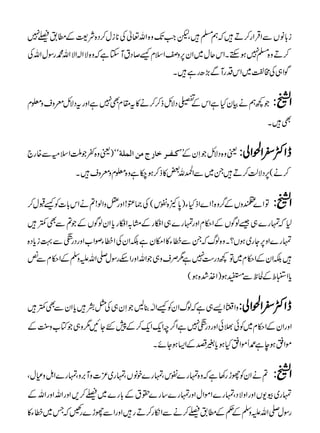 زبانوں سے اقرار کرتے ہیں کہ ہم مسلم ہیں، لیکن جب تک وہ اللہ تعالیٰ کی نازل کردہ شریعت کے مطابق فیصلے نہیں
کرتے وہ مسلم نہیں ہوسکتے۔ اس حال میں ان پر وصفِ اسلام کیسے صادق آسکتا ہے کہ وہ لا الہ الا اللہ محمد رسول اللہ کی
گواہی کی مخالفت میں اس قدر آگے بڑھ رہے ہیں۔
الشیخ: جو کچھ ہم نے بیان کیا ہے اس کے تفصیلی دلائل ذکر کرنے کا یہ مقام نہیں ہے اور یہ دلائل معروف ومعلوم
بھی ہیں۔
ڈاکٹر سفر الحوالی: یعنی وہ دلائل جو ان کے ’’کفر خارج من الملة‘‘ (یعنی وہ کفر جو ملت اسلامیہ سے خارج
کردے) پر دلالت کرتے ہیں جن میں سے الحمدللہ بعض کا ذکر ہوچکا ہے اور وہ معلوم ومعروف ہیں۔
الشیخ: تو اے عقلمندوں کے گروہ! اے اذکیاء، (پاکیزہ نفوس) کی جماعت! اور عقل والو! تم اپنے اوپر اس بات کو کیسے قبول کرسکتے
ہو کہ تمہارے اوپر تم ہی جیسے لوگوں کے احکام اور تمہارے ہی افکار کے مشابہ افکار یا ان لوگوں کے جو تم سے بھی کمتر ہیں
تمہارے اوپر جاری ہوں؟۔ وہ لوگ کہ جن سے خطاء کا امکان ہے بلکہ ان کی خطاء اصواب اور درستگی سے بہت زیادہ
ہیں بلکہ ان کے احکام میں تو کچھ درست نہیں ہے صرف وہی جو اللہ اور اس کے رسول صلی اللہ علیہ وسلم کے احکام سے نص
یا استنباط کے لحاظ سے مستفید ہو (اخذ شدہ ہو)
ڈاکٹر سفر الحوالی: واقعتاً ایسا ہی ہے کہ لوگ ان کو ایسے مانیں جو ان ہی کی مثل بشر ہیں یا ان سے بھی کمتر ہیں
اور ان کے احکام میں کوئی بھلائی اور درستگی نہیں ہے، اگرچہ ایک ایک کرکے پیش کئے جائیں گے مگر وہی جو کتاب وسنت کے
موافق ہو چاہے عمداً موافق ہو یا بغیر قصد کے ایسا ہو جائے۔
الشیخ: تم نے ان کو چھوڑ رکھا ہے کہ وہ تمہارے نفوس، تمہارے خونوں، تمہاری عزت وآبرو، تمہارے اہل وعیال،
تمہاری بیویوں اور اولاد، تمہارے اموال اور تمہارے سارے حقوق کے بارے میں فیصلے کریں اور اللہ اور اس کے
رسول صلی اللہ علیہ وسلم کے حکم کے مطابق فیصلے کرنے سے انکار کرتے رہیں اور اسے چھوڑے رکھیں کہ جس میں خطا کا